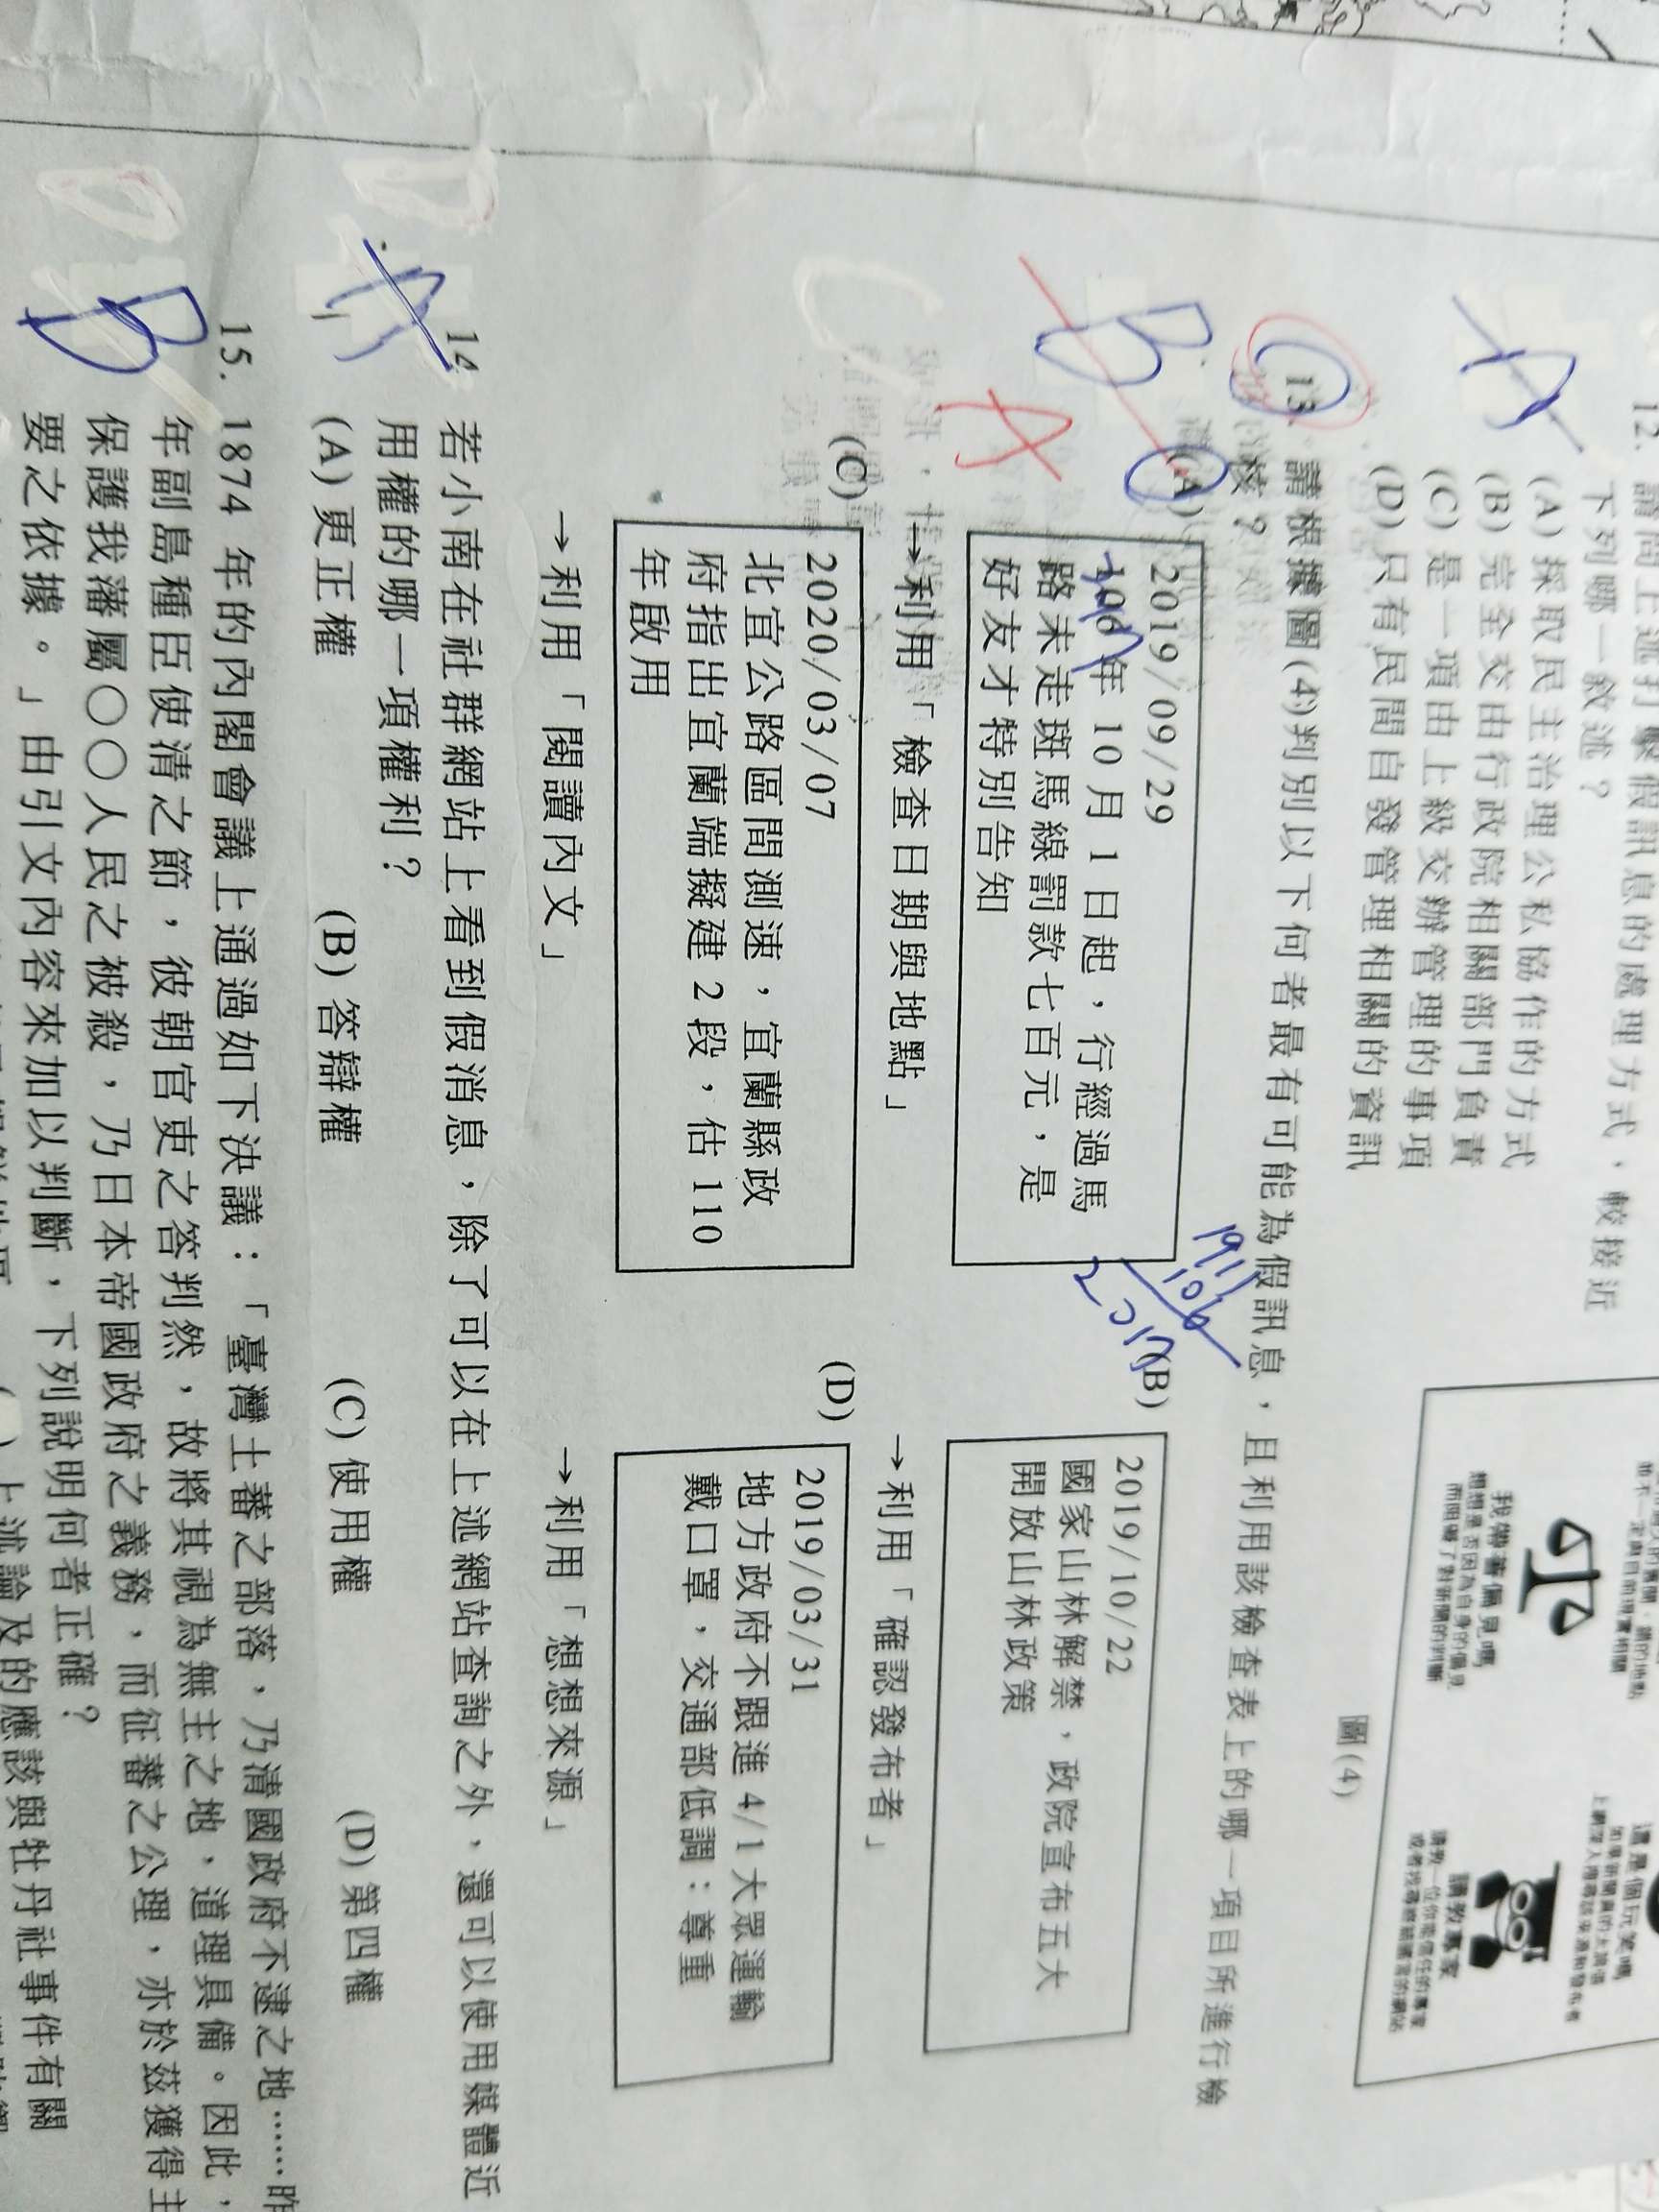 12. 請問上述打擊假訊息的處理方式，較接近
下列哪一敘述？
(A) 採取民主治理公私協作的方式
(B) 完全交由行政院相關部門負責
(C) 是一項由上級交辦管理的事項
(D) 只有民間自發管理相關的資訊
我帶著偏見嗎
想想是否因為自身的偏見
而阻礙了對新聞的判斷
這是個玩笑嗎
請教專家
圖(4)
A
13. 請根據圖(4)判別以下何者最有可能為假訊息，且利用該檢查表上的哪一項目所進行檢
核？
B
A
(A)
2019/09/29
106 年 10 月 1 日起，行經過馬
路未走斑馬線罰款七百元，是
好友才特別告知
→利用「檢查日期與地點」
1911
106
2017
(B)
2019/10/22
國家山林解禁，政院宣布五大
開放山林政策
→利用「確認發布者」
(C)
2020/03/07
北宜公路區間測速，宜蘭縣政
府指出宜蘭端擬建 2 段，估 110
年啟用
→利用「閱讀內文」
(D)
2019/03/31
地方政府不跟進 4/1 大眾運輸
戴口罩，交通部低調：尊重
→利用「想想來源」
A
14. 若小南在社群網站上看到假消息，除了可以在上述網站查詢之外，還可以使用媒體近
用權的哪一項權利？
(A) 更正權 (B) 答辯權 (C) 使用權 (D) 第四權
B
15. 1874 年的內閣會議上通過如下決議：「臺灣土蕃之部落，乃清國政府不逮之地……昨
年副島種臣使清之節，彼朝官吏之答判然，故將其視為無主之地，道理具備。因此，
保護我藩屬○○人民之被殺，乃日本帝國政府之義務，而征蕃之公理，亦於茲獲得主
要之依據。」由引文內容來加以判斷，下列說明何者正確？
上述論及的應該與牡丹社事件有關